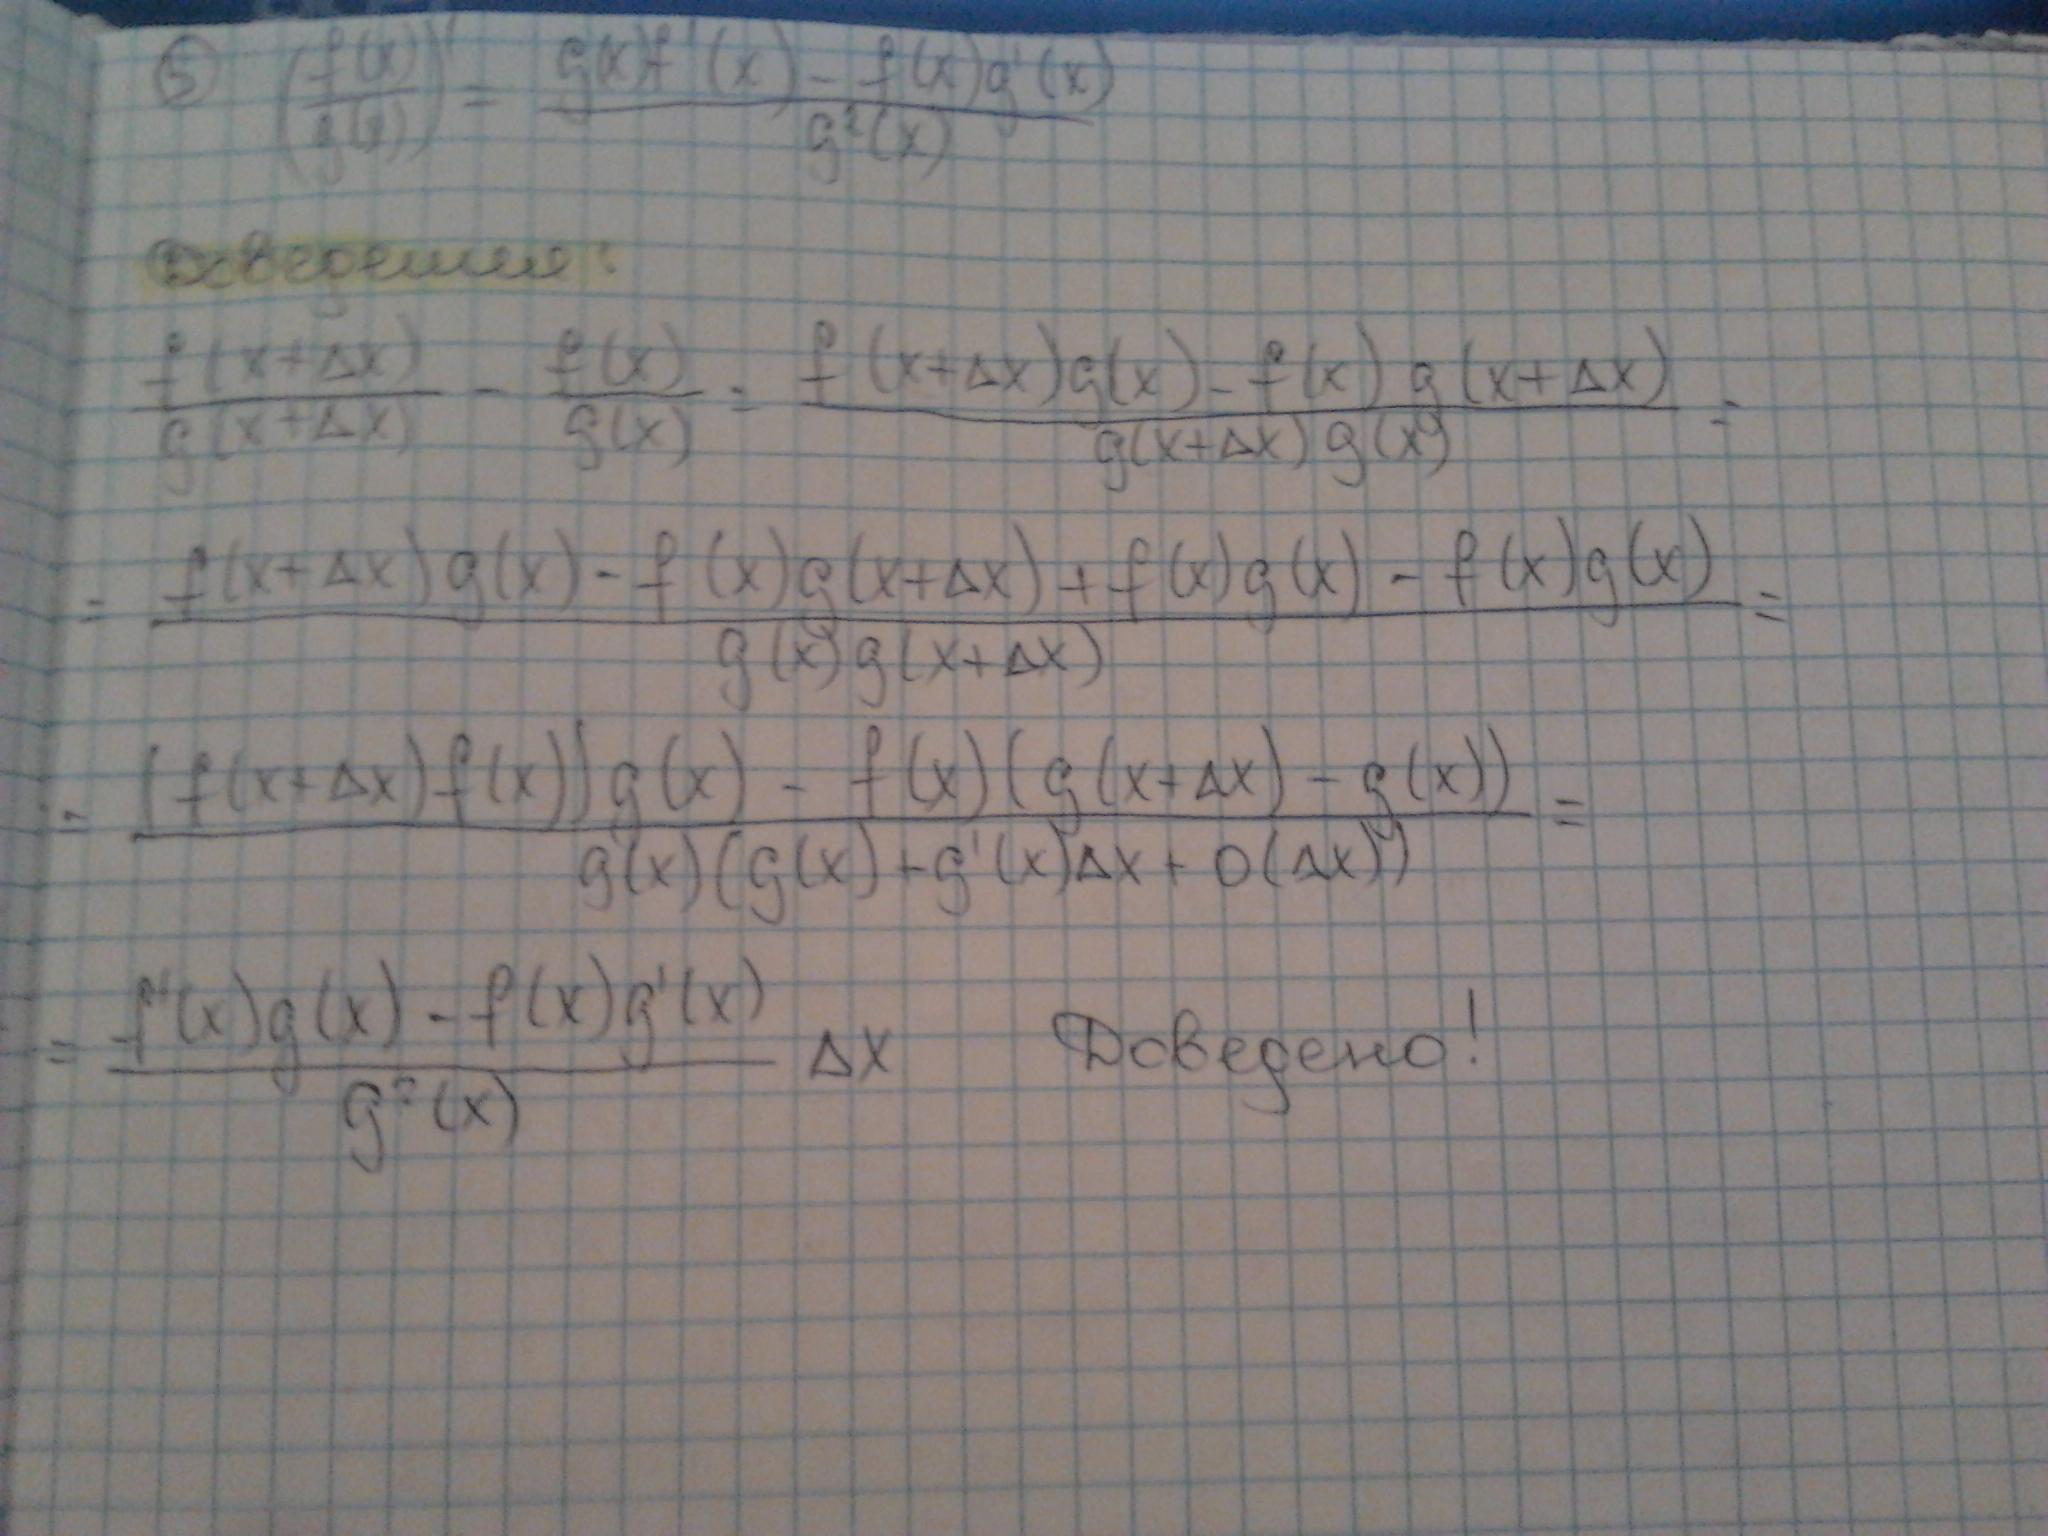 ⑤ (f(x)/g(x))' = (g(x)f'(x) - f(x)g'(x))/(g²(x))
Доведення:
f(x+Δx)/g(x+Δx) - f(x)/g(x) = (f(x+Δx)g(x) - f(x)g(x+Δx))/(g(x+Δx)g(x)) =
= (f(x+Δx)g(x) - f(x)g(x+Δx) + f(x)g(x) - f(x)g(x))/(g(x)g(x+Δx)) =
= ((f(x+Δx)f(x))g(x) - f(x)(g(x+Δx) - g(x)))/(g(x)(g(x)+g'(x)Δx+O(Δx))) =
= (f'(x)g(x) - f(x)g'(x))/(g²(x)) Δx Доведено!